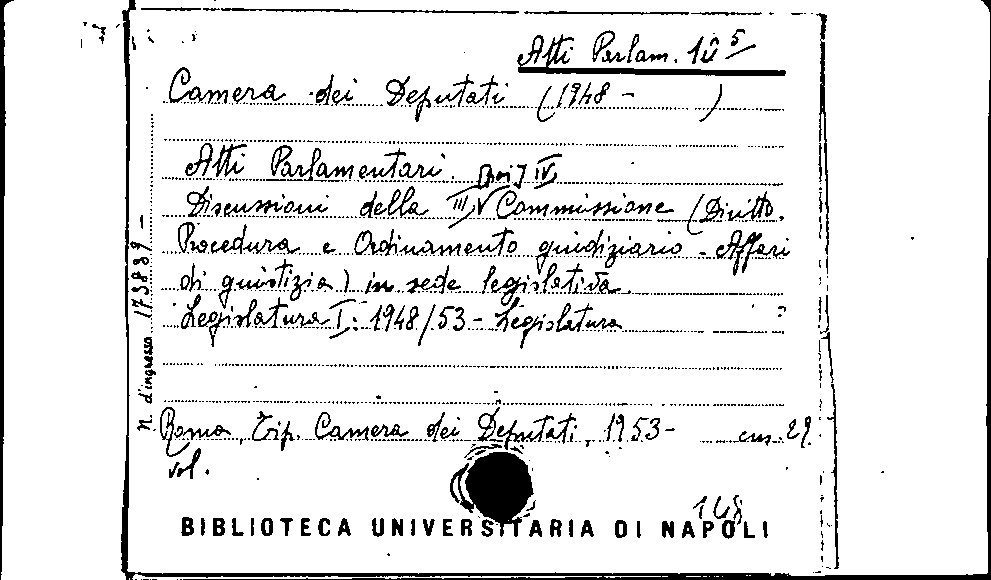 Atti Parlam. 10 5
Camera dei Deputati (1948 - )
Atti Parlamentari.
poi IV
Discussioni della III Commissione (Diritto.
Procedura e Ordinamento giudiziario - Affari
di giustizia) in sede legislativa.
Legislatura I: 1948/53 - Legislatura
Roma, Tip. Camera dei Deputati, 1953- cm. 29.
vol.
148
BIBLIOTECA UNIVERSITARIA DI NAPOLI
N. d'ingresso 173839-